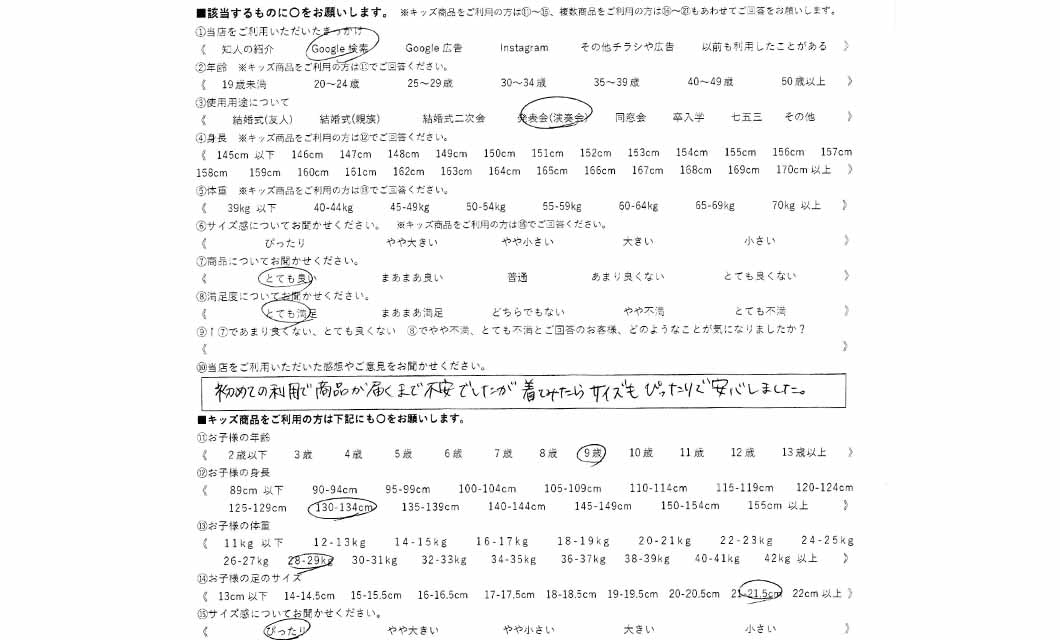 ■該当するものに〇をお願いします。 ※キッズ商品をご利用の方は⑪〜⑮、複数商品をご利用の方は⑯〜㉑もあわせてご回答をお願いします。
①当店をご利用いただいたきっかけ
《 知人の紹介 Google 検索 Google 広告 Instagram その他チラシや広告 以前も利用したことがある 》
②年齢 ※キッズ商品をご利用の方は⑪でご回答ください。
《 19歳未満 20〜24歳 25〜29歳 30〜34歳 35〜39歳 40〜49歳 50歳以上 》
③使用用途について
《 結婚式(友人) 結婚式(親族) 結婚式二次会 発表会(演奏会) 同窓会 卒入学 七五三 その他 》
④身長 ※キッズ商品をご利用の方は⑫でご回答ください。
《 145cm 以下 146cm 147cm 148cm 149cm 150cm 151cm 152cm 153cm 154cm 155cm 156cm 157cm
158cm 159cm 160cm 161cm 162cm 163cm 164cm 165cm 166cm 167cm 168cm 169cm 170cm 以上 》
⑤体重 ※キッズ商品をご利用の方は⑬でご回答ください。
《 39kg 以下 40-44kg 45-49kg 50-54kg 55-59kg 60-64kg 65-69kg 70kg 以上 》
⑥サイズ感についてお聞かせください。 ※キッズ商品をご利用の方は⑮でご回答ください。
《 ぴったり やや大きい やや小さい 大きい 小さい 》
⑦商品についてお聞かせください。
《 とても良い まあまあ良い 普通 あまり良くない とても良くない 》
⑧満足度についてお聞かせください。
《 とても満足 まあまあ満足 どちらでもない やや不満 とても不満 》
⑨↑⑦であまり良くない、とても良くない ⑧でやや不満、とても不満とご回答のお客様、どのようなことが気になりましたか？
《 》
⑩当店をご利用いただいた感想やご意見をお聞かせください。
初めての利用で商品が届くまで不安でしたが着てみたらサイズもぴったりで安心しました。
■キッズ商品をご利用の方は下記にも〇をお願いします。
⑪お子様の年齢
《 2歳以下 3歳 4歳 5歳 6歳 7歳 8歳 9歳 10歳 11歳 12歳 13歳以上 》
⑫お子様の身長
《 89cm 以下 90-94cm 95-99cm 100-104cm 105-109cm 110-114cm 115-119cm 120-124cm
125-129cm 130-134cm 135-139cm 140-144cm 145-149cm 150-154cm 155cm 以上 》
⑬お子様の体重
《 11kg 以下 12-13kg 14-15kg 16-17kg 18-19kg 20-21kg 22-23kg 24-25kg
26-27kg 28-29kg 30-31kg 32-33kg 34-35kg 36-37kg 38-39kg 40-41kg 42kg 以上 》
⑭お子様の足のサイズ
《 13cm以下 14-14.5cm 15-15.5cm 16-16.5cm 17-17.5cm 18-18.5cm 19-19.5cm 20-20.5cm 21-21.5cm 22cm以上 》
⑮サイズ感についてお聞かせください。
《 ぴったり やや大きい やや小さい 大きい 小さい 》